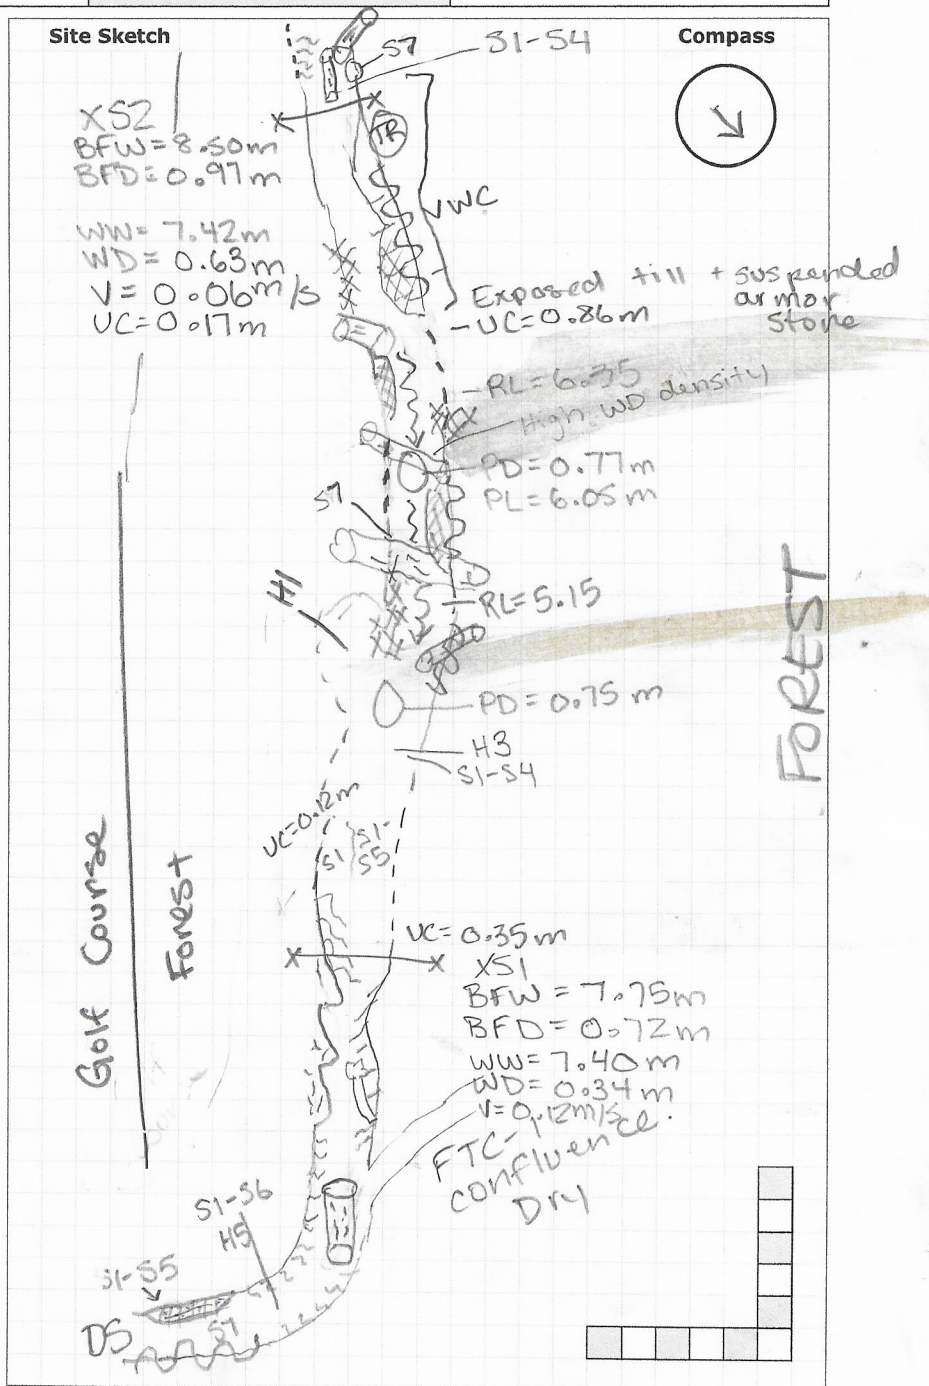 Site Sketch
Compass
S7
S1-S4
XS2
BFW = 8.50m
BFD = 0.97m
WW = 7.42m
WD = 0.63m
V = 0.06m/s
UC = 0.17m
TR
VWC
Exposed till + suspended
armor
stone
- UC = 0.86m
- RL = 6.35
High WD density
PD = 0.77m
PL = 6.05m
S7
H1
RL = 5.15
FOREST
PD = 0.75 m
H3
S1-S4
UC = 0.12m
S1
S1-
S5
Golf Course
Forest
UC = 0.35m
XS1
BFW = 7.75m
BFD = 0.72m
WW = 7.40m
WD = 0.34m
V = 0.12m/s
FTC-
confluence.
Dry
S1-S6
H5
S1-S5
DS
S7